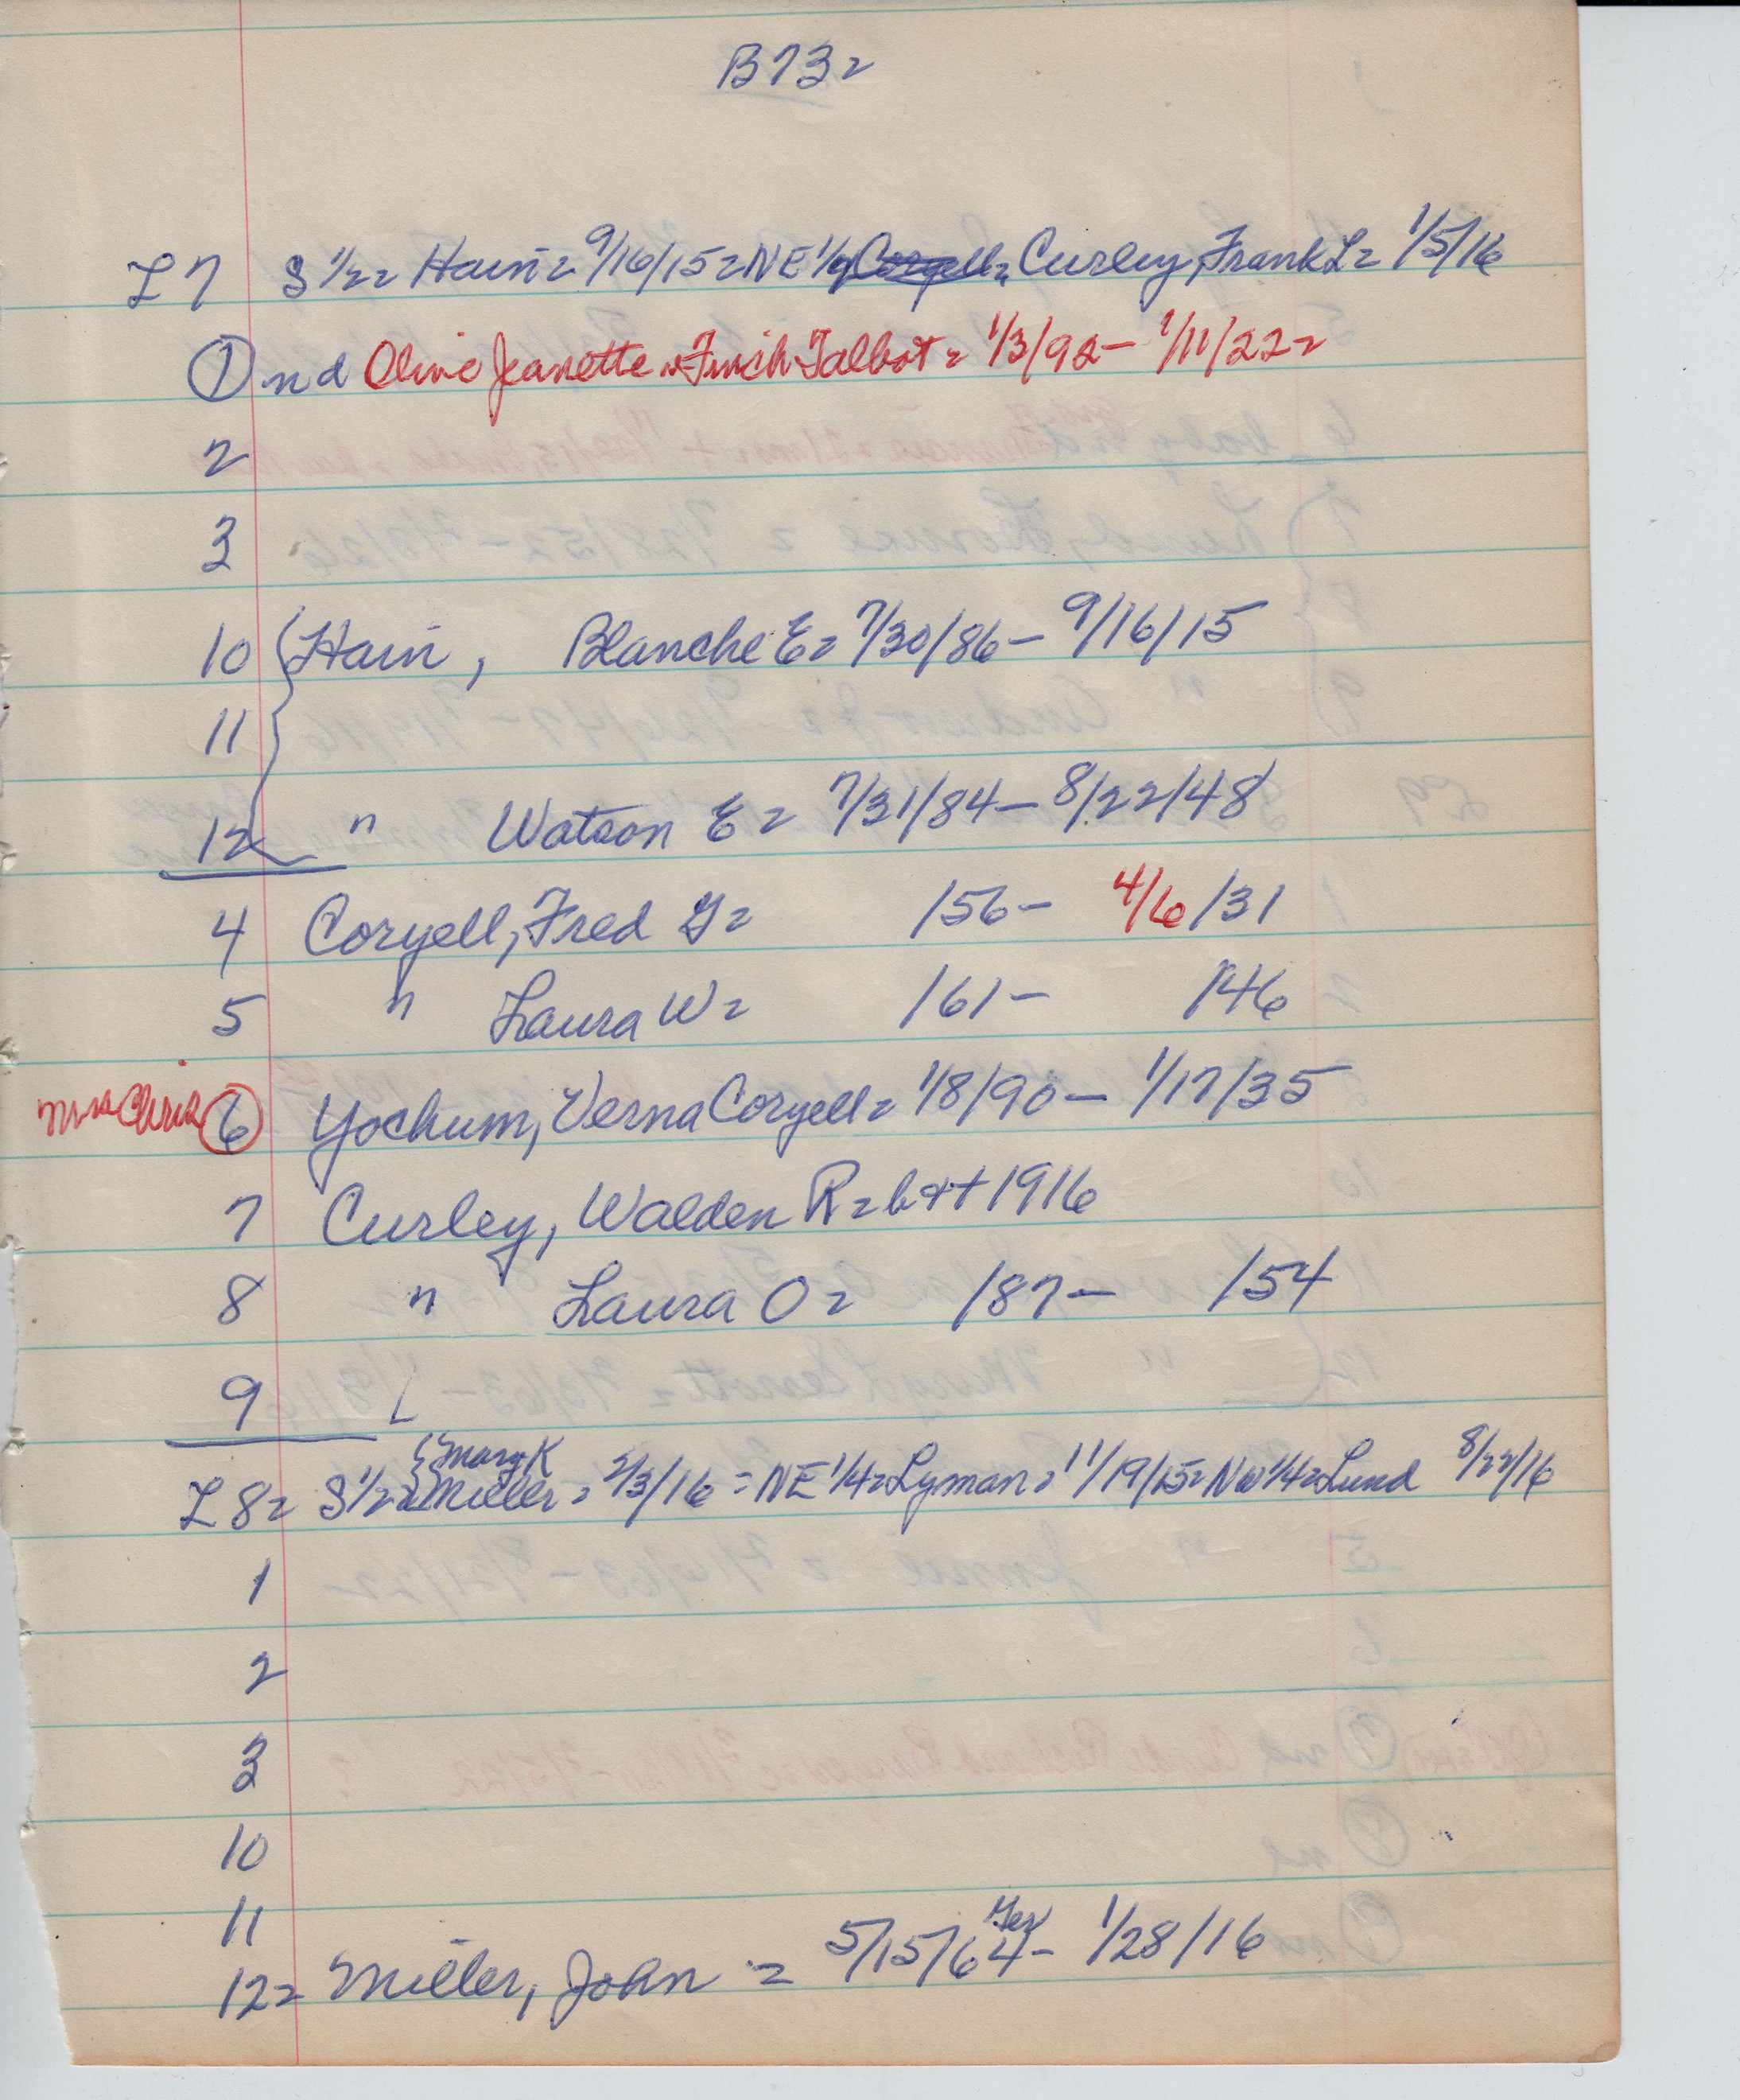 B73=
L7 S 1/2= Hain= 9/16/15= NE 1/4 Coryell= Curley, Frank L= 1/5/16
1 nd Olive Jeanette Finch Talbot= 1/3/92- 1/11/22=
2
3
10 Hain, Blanche E= 7/30/86- 9/16/15
11
12 " Watson E= 7/31/84- 8/22/48
4 Coryell, Fred G= /56- 4/6/31
5 " Laura W= /61- /46
Mrs Chris 6 Yochum, Verna Coryell= 1/8/90- 1/17/35
7 Curley, Walden R= b++ 1916
8 " Laura O= /87- /54
9
Mary K
L8= S 1/2= Miller= 2/3/16 = NE 1/4= Lyman= 11/19/15= NW 1/4= Lund 8/22/16
1
2
3
10
11
Ger
12= Miller, John = 5/15/64- 1/28/16